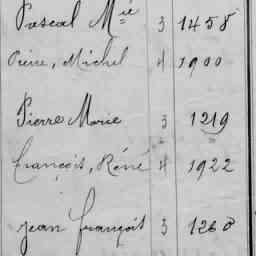 Pascal Mie 3 1458
Pierre, Michel 4 1900
Pierre Marie 3 1219
François, René 4 1922
Jean François 3 1260